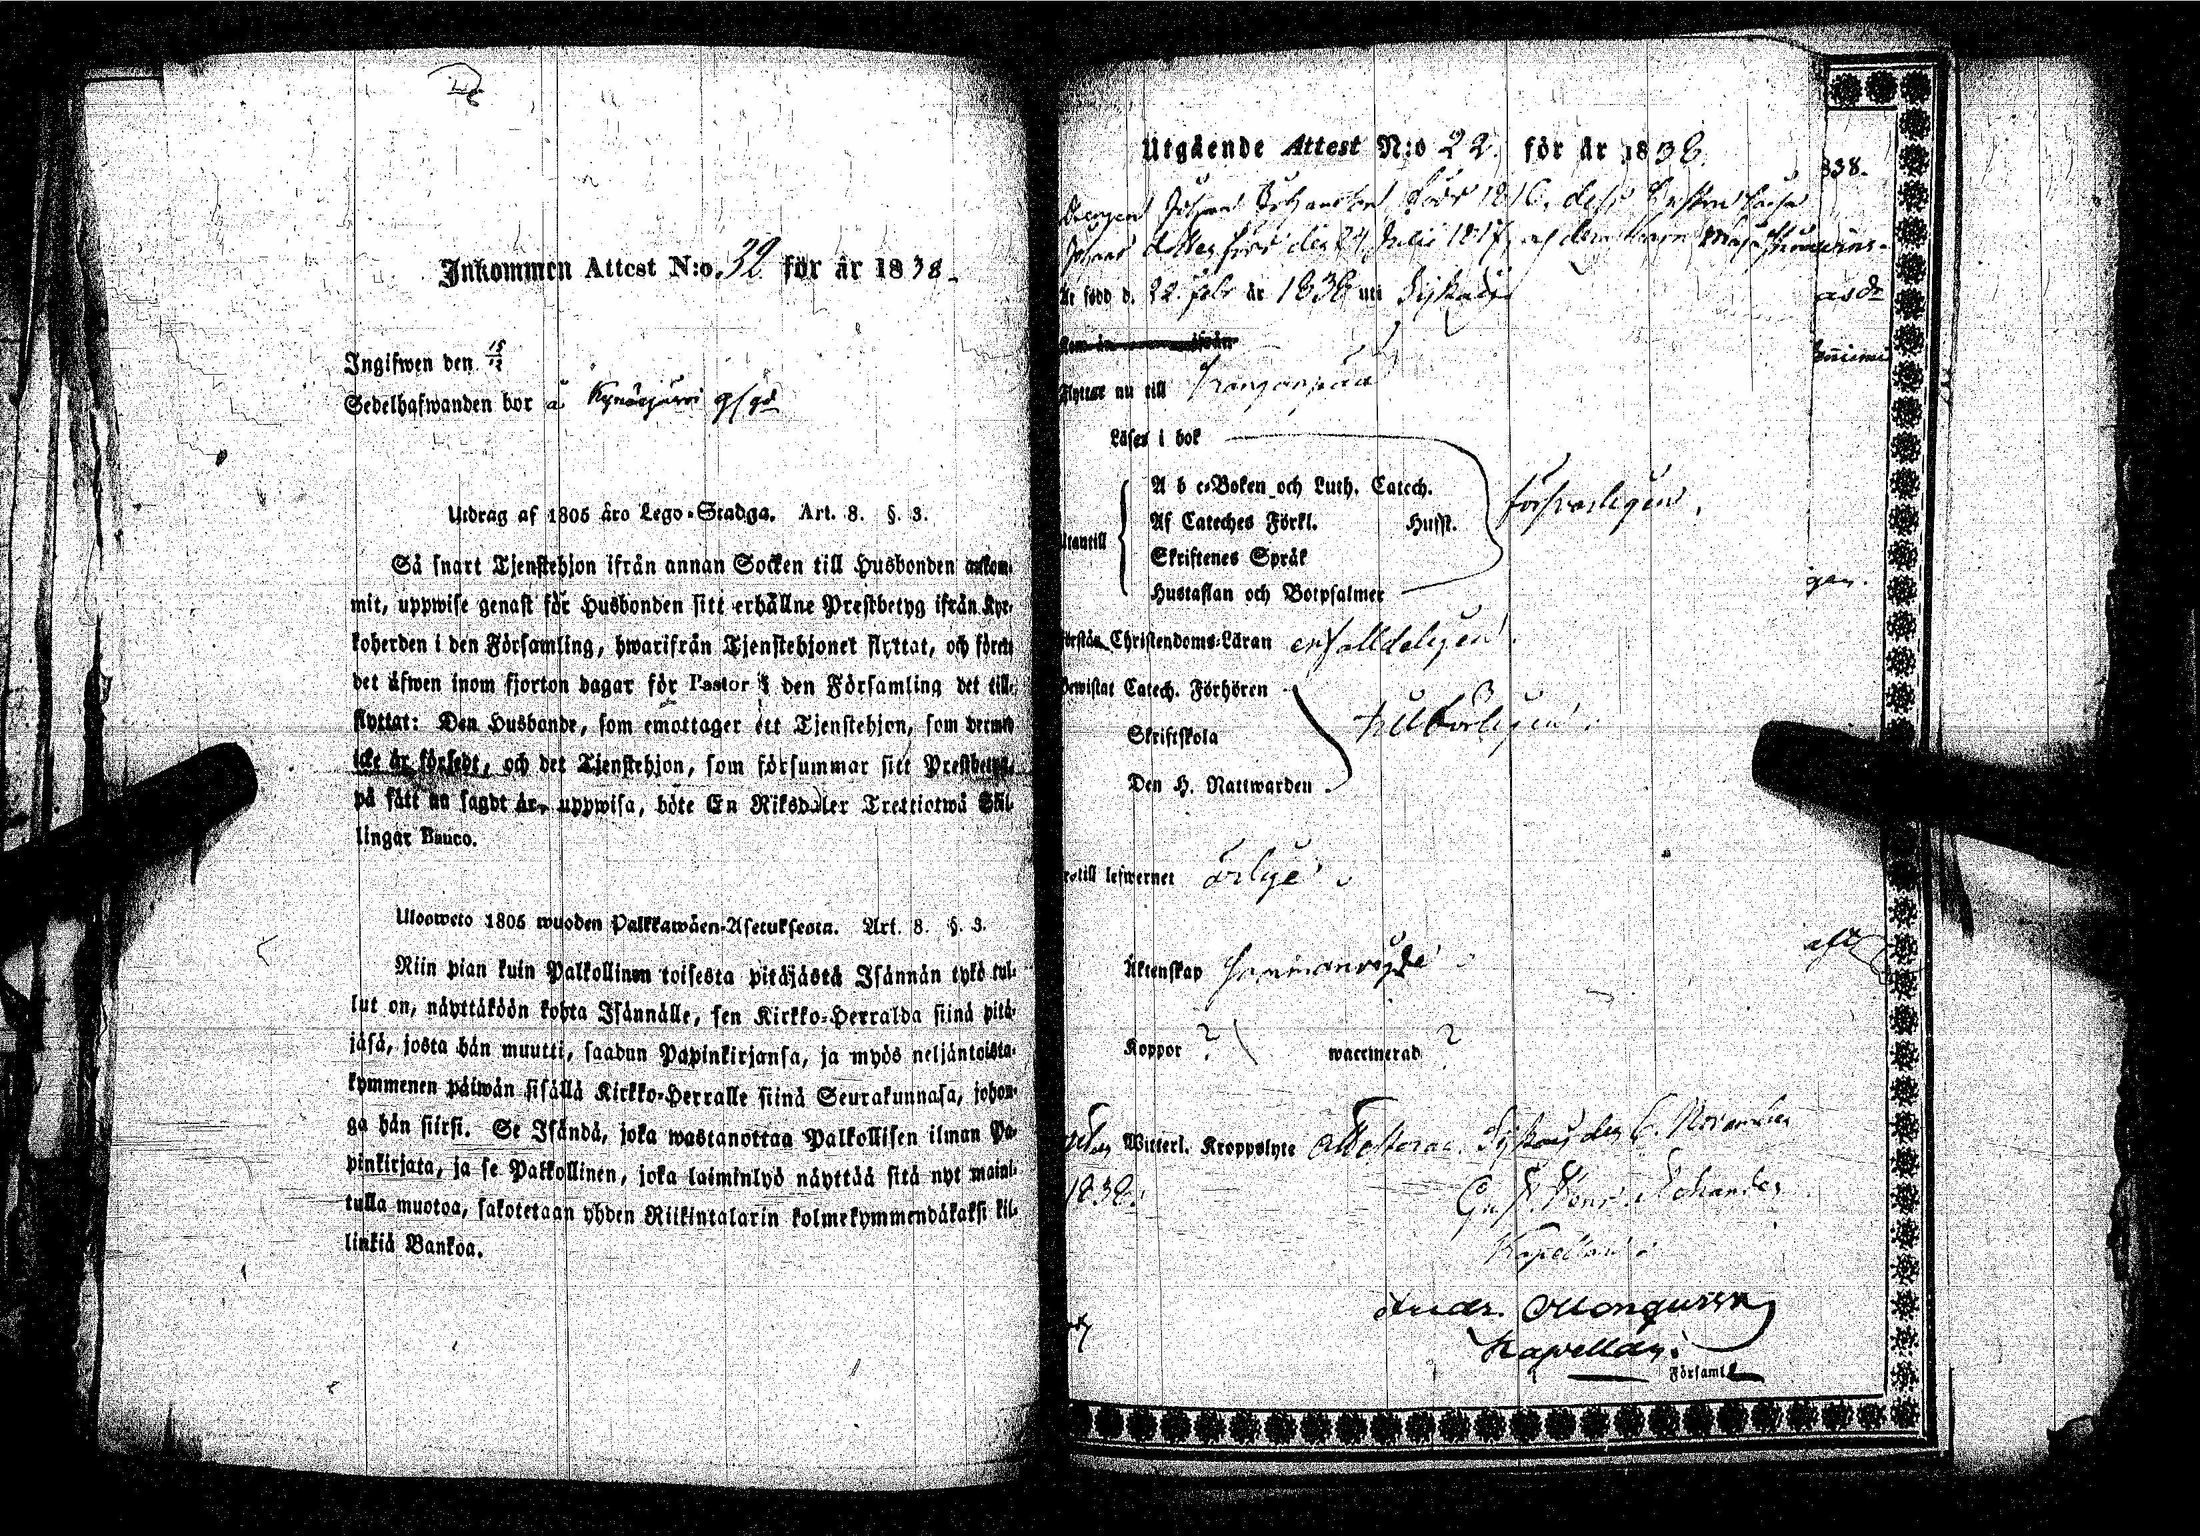 Inkommen Attest N:o 32 för år 1838.
Ingifwen den 15/12
Sedelhafwanden bor å Kynäsjärvi
Utdrag af 1805 års Lego-Stadga. Art. 8. §. 3.
Så snart Tjenstehjon ifrån annan Socken till Husbonden ankom-
mit, uppwise genast för Husbonden sitt erhållne Prestbetyg ifrån Kyr-
koherden i den Församling, hwarifrån Tjenstehjonet flyttat, och förete
det äfwen inom fjorton dagar för Pastor i den Församling det till-
flyttat: Den Husbonde, som emottager ett Tjenstehjon, som dermed
icke är försedt, och det Tjenstehjon, som försummar sitt Prestbetyg,
på sätt nu sagdt är, uppwisa, böte En Riksdaler Trettiotwå Skil-
lingar Banco.
Ulosweto 1805 wuoden Palkkawäen-Asetuksesta. Art. 8. §. 3.
Niin pian kuin Palkollinen toisesta pitäjästä Isännän tykö tul-
lut on, näyttäköön kohta Isännälle, sen Kirkko-Herralda siinä pitä-
jäsä, josta hän muutti, saadun Papinkirjansa, ja myös neljäntoista-
kymmenen päiwän sisällä Kirkko-Herralle siinä Seurakunnasa, johon-
ga hän siirsi. Se Isändä, joka wastanottaa Palkollisen ilman Pa-
pinkirjata, ja se Palkollinen, joka laiminlyö näyttää sitä nyt maini-
tulla muotoa, sakotetaan yhden Riikintalarin kolmekymmendäkaksi kil-
linkiä Bankoa.
Utgående Attest N:o 22. för år 1838
838.
Drengen Johan Johansson född 1816, dess hustru
Johans dotter född den 24 Julii 1817, Maja
Är född d. 22 febr år 1838 uti
asdr
Flyttar nu till Kanganpää
Läser i bok
A b c-Boken och Luth. Catech.
Af Cateches Förkl. Hufst.
Utantill Skriftenes Språk
Hustaflan och Botpsalmer
försvarligen.
gen.
Förstån Christendoms-Läran enfalldeligen.
Bewistat Catech. Förhören
Skriftskola
Den H. Nattwarden
tillbörligen.
till lefwernet ärlige
Äktenskap sammanvigde
Koppor ? waccinerad ?
Witterl. Kroppslyte attesterar den 6. November
1838.
Kapellan.
Andr. Monquisn
Kapellan.
Församl